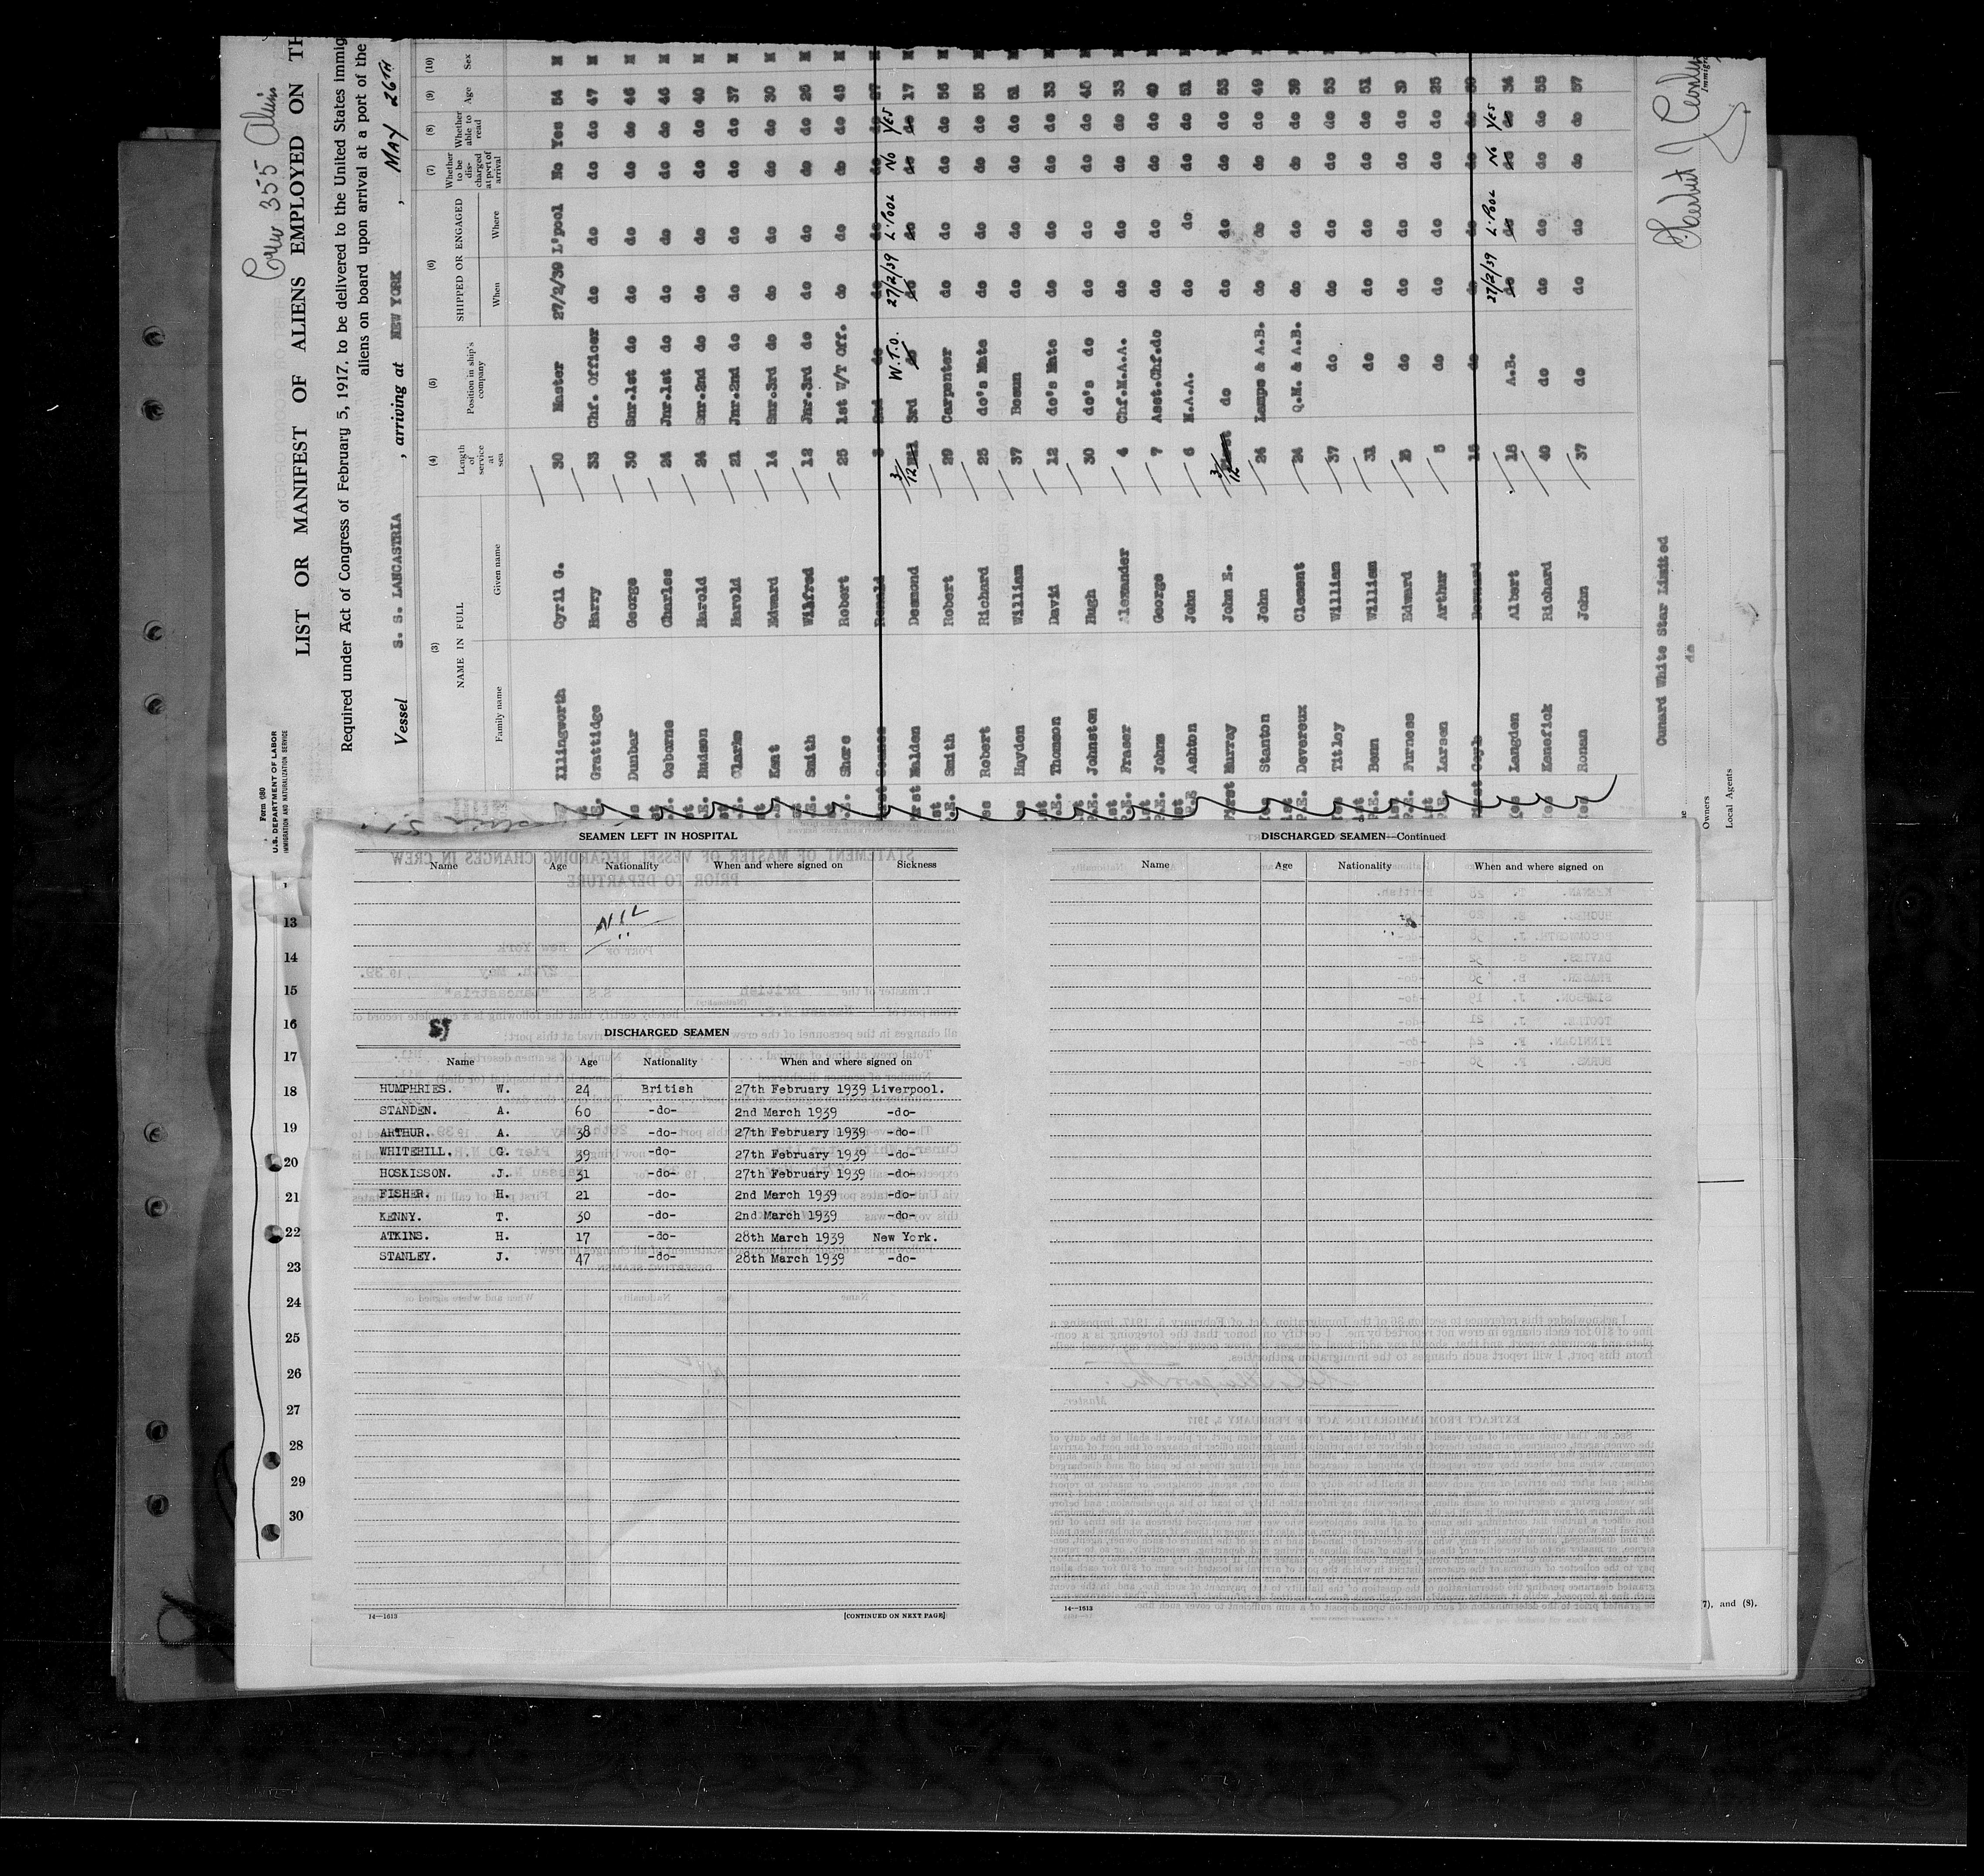 Crew 355 Alien
Form 680
U.S. DEPARTMENT OF LABOR
IMMIGRATION AND NATURALIZATION SERVICE
LIST OR MANIFEST OF ALIENS EMPLOYED ON
Required under Act of Congress of February 5, 1917, to be delivered to the United States
aliens on board upon arrival at a port of the
Vessel S. S. LANCASTRIA , arriving at NEW YORK , MAY 26TH
(3) (4) (5) (6) (7) (8) (9) (10)
NAME IN FULL Length of service at sea Position in ship's company SHIPPED OR ENGAGED Whether to be discharged at port of arrival Whether able to read Age Sex
Family name Given name When Where
Illingworth Cyril G. 30 Master 27/2/39 L'pool No Yes 54 M
Grattidge Harry 33 Chf. Officer do do do do 47 M
Dunbar George 30 Snr.1st do do do do do 46 M
Osborne Charles 24 Jnr.1st do do do do do 46 M
Hudson Harold 24 Snr.2nd do do do do do 40 M
Clarke Harold 21 Jnr.2nd do do do do do 37 M
Kent Edward 14 Snr.3rd do do do do do 30 M
Smith Wilfred 12 Jnr.3rd do do do do do 26 M
Share Robert 25 1st W/T Off. do do do do 48 M
Ronald 2nd do do do do do 27 M
Malden Desmond 3/12 3rd W.T.O. 27/2/39 L'POOL No YES 17 M
Smith Robert 29 Carpenter do do do do 56 M
Robert Richard 25 do's Mate do do do do 55
Hayden William 37 Bosun do do do do 51
Thomson David 12 do's Mate do do do do 33
Johnston Hugh 30 do's do do do do do 45
Fraser Alexander 4 Chf.M.A.A. do do do do 33
Johns George 7 Asst.Chf.do do do do do 49
Ashton John 6 M.A.A. do do do do 51
Murray John E. 3/12 do do do do do 53
Stanton John 24 Lamps & A.B. do do do do 49
Devereux Clement 24 Q.M. & A.B. do do do do 39
Titley William 37 do do do do do 53
Benn William 31 do do do do do 51
Furness Edward do do do do do
Larsen Arthur 5 do do do do do 25
Bernard do do do do do
Langden Albert 18 A.B. 27/2/39 L'POOL No YES 34
Kenefick Richard 40 do do do do do 55
Ronan John 37 do do do do do 57
Cunard White Star Limited
do
Owners
Local Agents
Herbert J.
13
14
15
16
17
18
19
20
21
22
23
24
25
26
27
28
29
30
SEAMEN LEFT IN HOSPITAL
Name Age Nationality When and where signed on Sickness
NIL
DISCHARGED SEAMEN
Name Age Nationality When and where signed on
HUMPHRIES. W. 24 British 27th February 1939 Liverpool.
STANDEN. A. 60 -do- 2nd March 1939 -do-
ARTHUR. A. 38 -do- 27th February 1939 -do-
WHITEHILL. G. 39 -do- 27th February 1939 -do-
HOSKISSON. J. 31 -do- 27th February 1939 -do-
FISHER. H. 21 -do- 2nd March 1939 -do-
KENNY. T. 30 -do- 2nd March 1939 -do-
ATKINS. H. 17 -do- 28th March 1939 New York.
STANLEY. J. 47 -do- 28th March 1939 -do-
14—1613 [CONTINUED ON NEXT PAGE]
DISCHARGED SEAMEN—Continued
Name Age Nationality When and where signed on
14—1613
7), and (8).